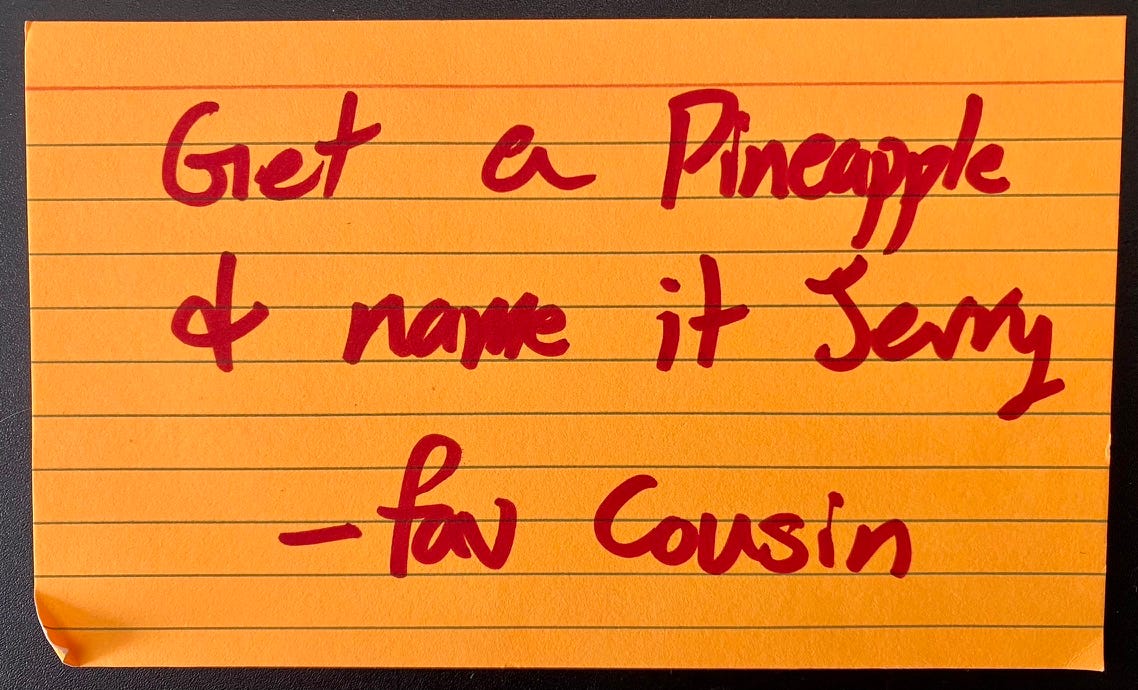 Get a Pineapple
& name it Jerry
- fav Cousin